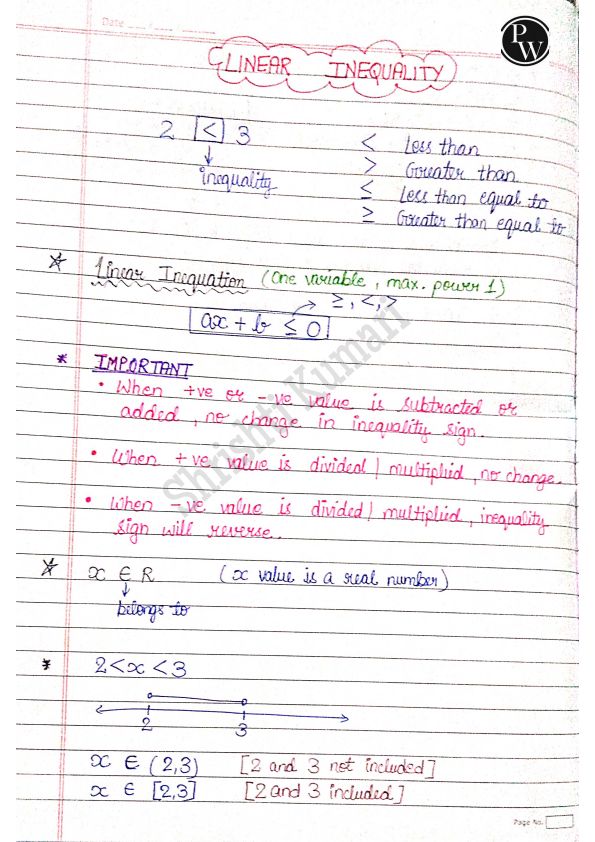 Date
PW
LINEAR INEQUALITY
2 < 3
inequality
< Less than
> Greater than
≤ Less than equal to
≥ Greater than equal to
Linear Inequation (One variable, max. power 1)
≥, <, >
ax + b ≤ 0
* IMPORTANT
• When +ve or -ve value is subtracted or
added, no change in inequality sign.
• When +ve value is divided / multiplied, no change.
• When -ve value is divided / multiplied, inequality
sign will reverse.
x ∈ R (x value is a real number)
belongs to
* 2<x<3
2 3
x ∈ (2,3) [2 and 3 not included]
x ∈ [2,3] [2 and 3 included]
Shrishti Kumari
Page No.